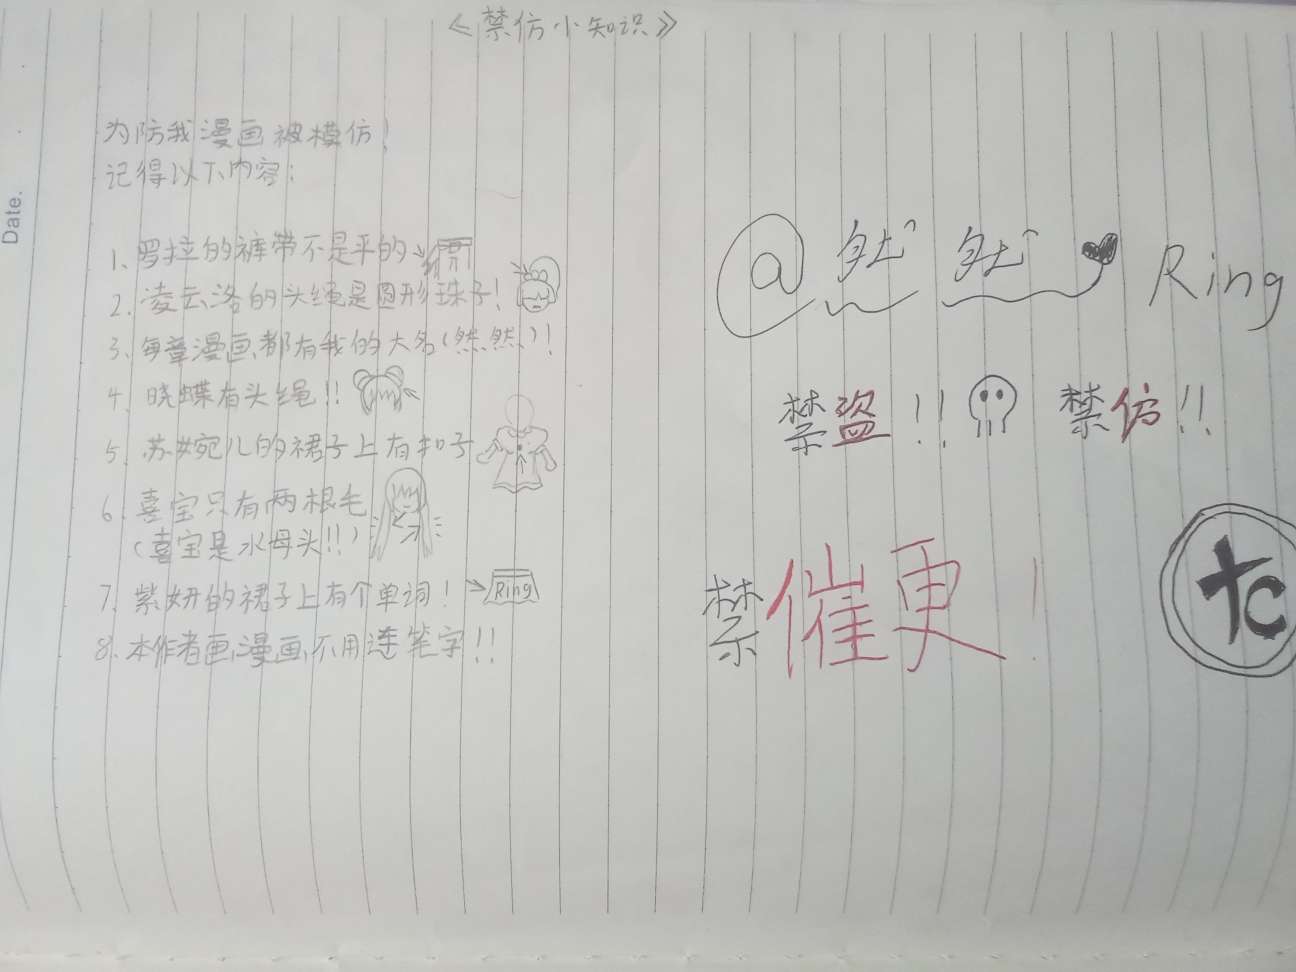 《禁仿小知识》
为防我漫画被模仿！
记得以下内容：
1、罗拉的裤带不是平的
2、凌云洛的头绳是圆形珠子！
3、每章漫画都有我的大名（然然）！
4、晓蝶有头绳！！
5、苏婉儿的裙子上有扣子
6、喜宝只有两根毛
（喜宝是水母头！！）
7、紫妍的裙子上有个单词！
Ring
8、本作者画漫画不用连笔字！！
Date.
@然然 Ring
禁盗！！ 禁仿！！
禁催更！